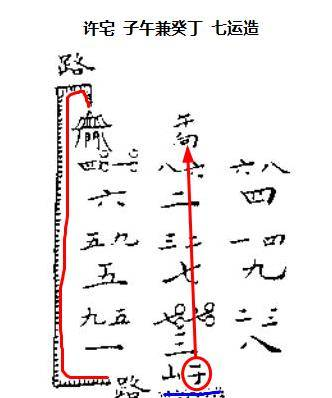 许宅 子午兼癸丁 七运造
路
門 午向
四一 八六 六八
六 二 四
五九 三二 一四
五 七 九
九五 七七 二三
一 三 八
路 山子